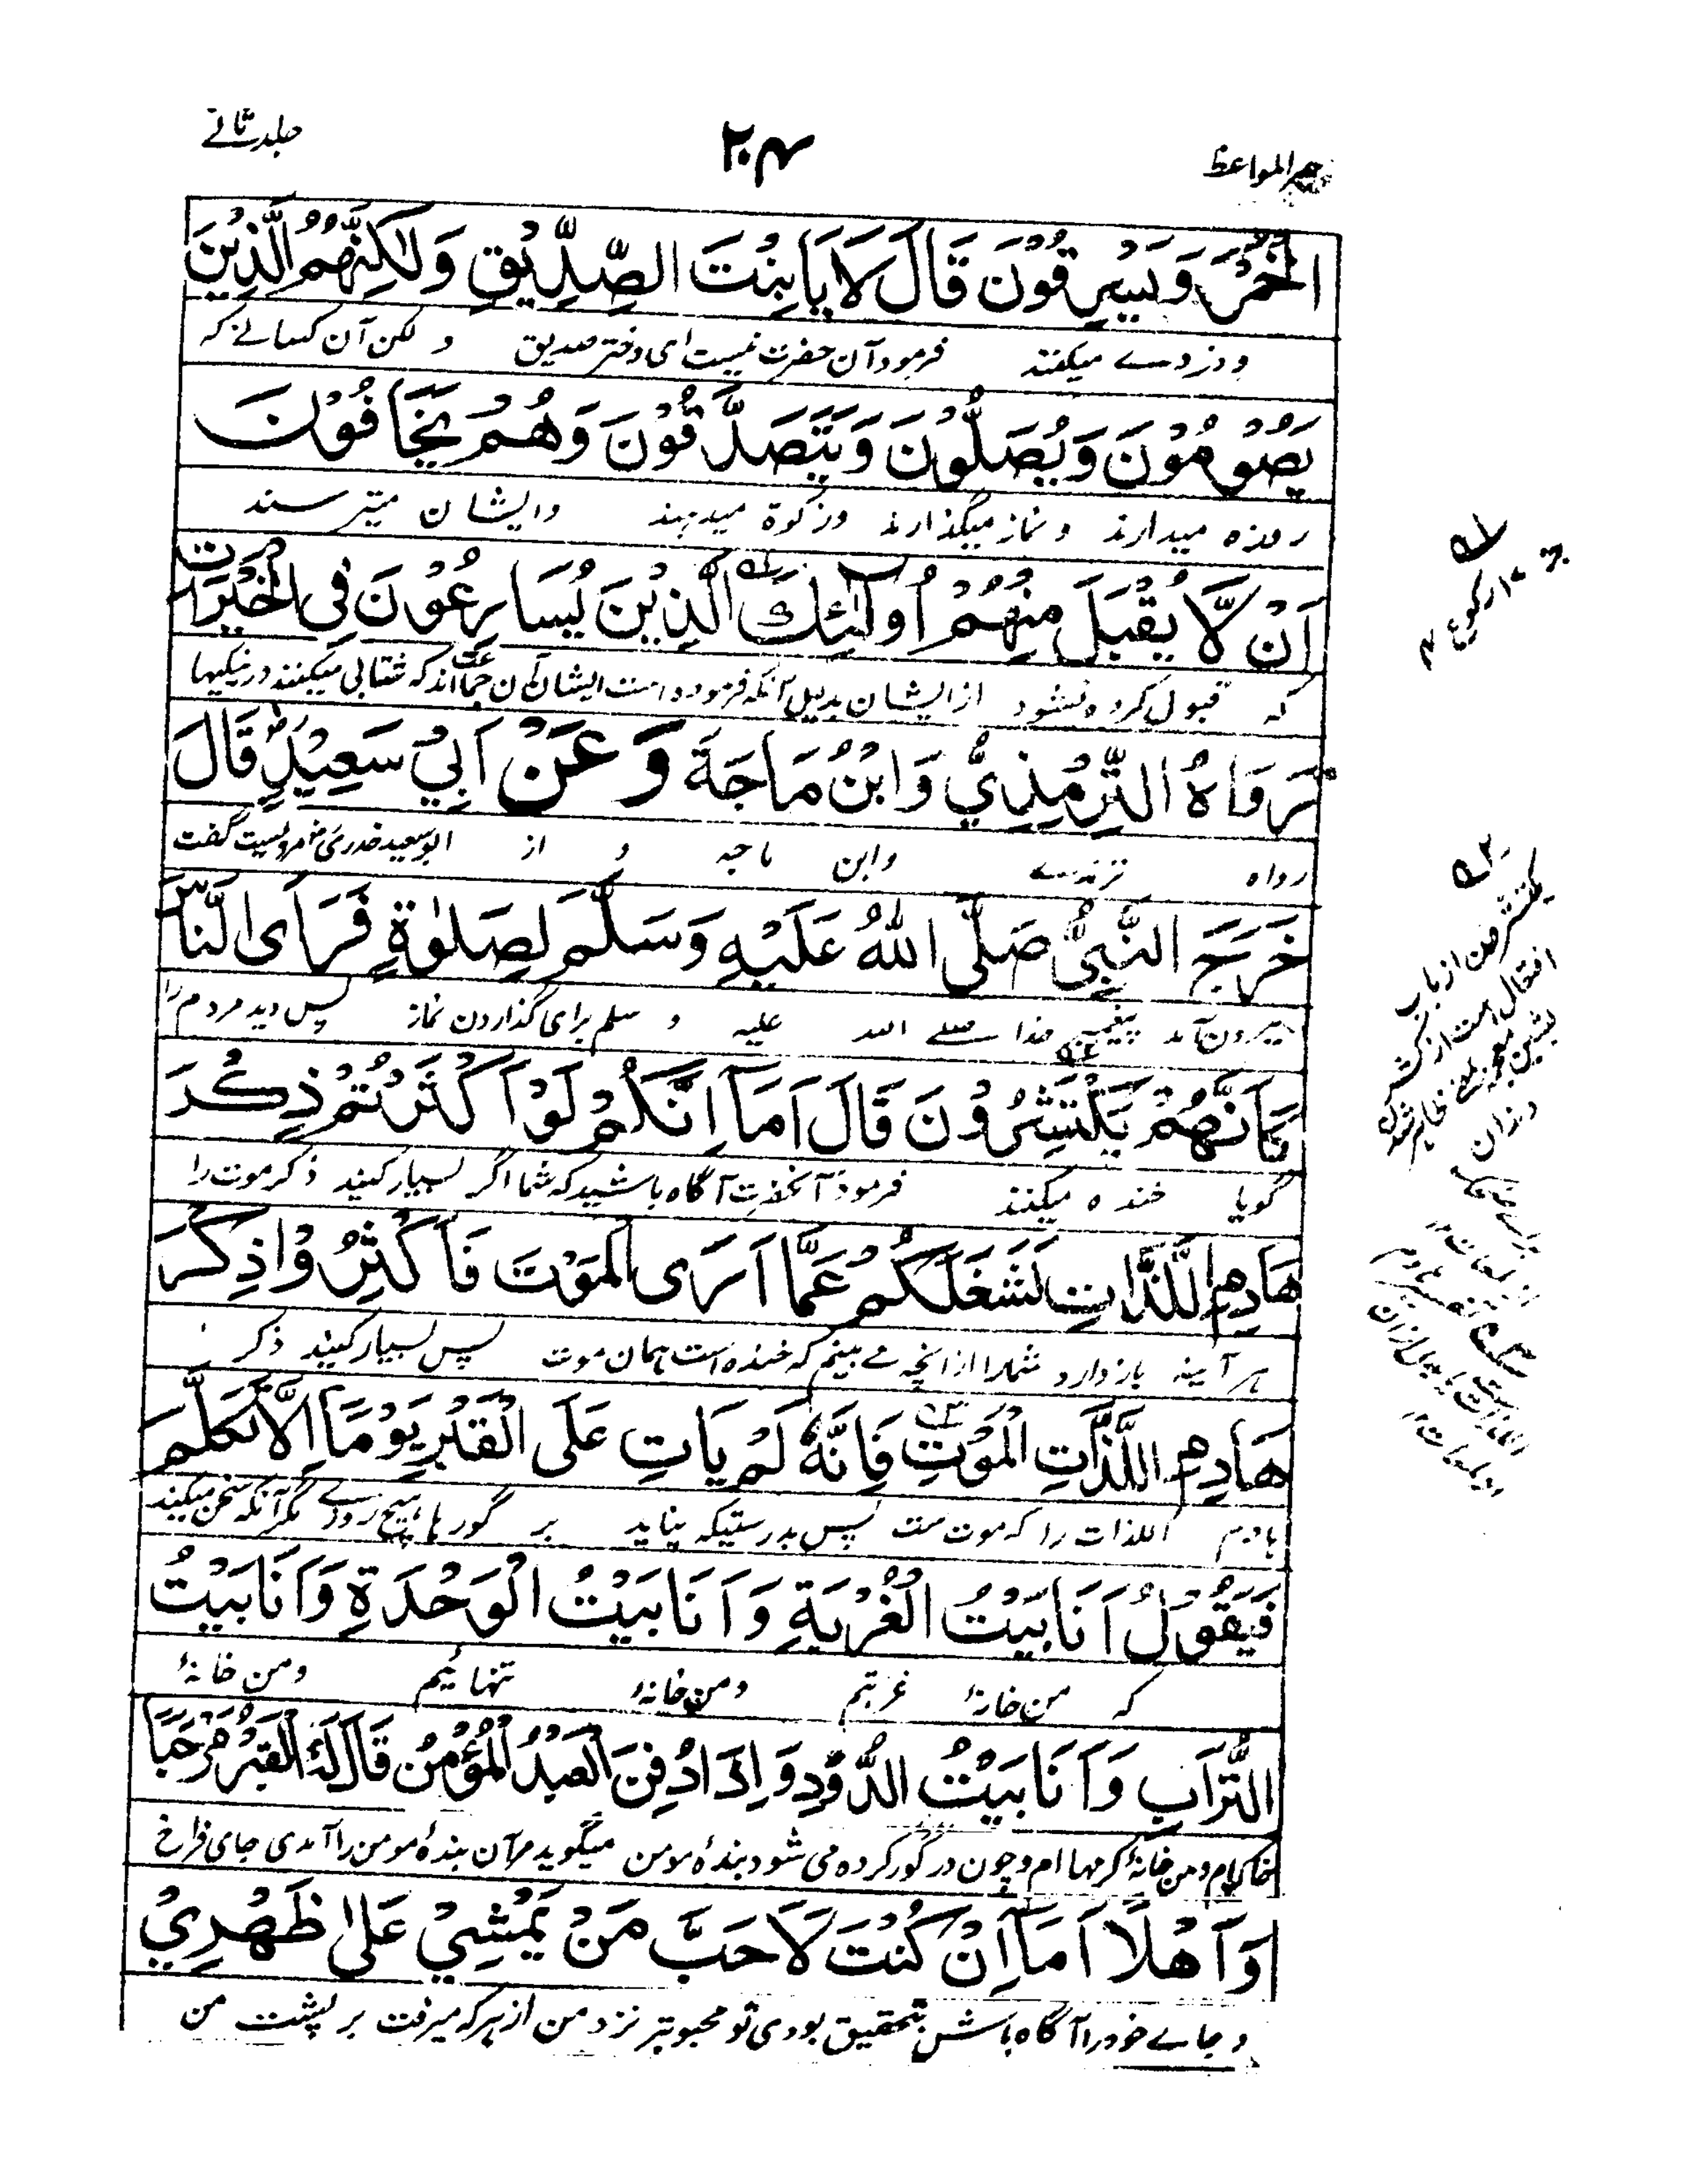 جلد ثانے
۲۰۴
المواعظ
الْخَمْرَ وَيَسْرِقُوْنَ قَالَ لَا يَا بِنْتَ الصِّدِّيْقِ وَلٰكِنَّهُمُ الَّذِيْنَ
و دزدے میکنند فرمود آن حضرت نیست ای دختر صدیق و لکن آن کسانے که
يَصُوْمُوْنَ وَيُصَلُّوْنَ وَيَتَصَدَّقُوْنَ وَهُمْ يَخَافُوْنَ
روزه میدارند و نماز میگذارند و زکوة میدهند و ایشان میترسند
اَنْ لَّا يُقْبَلَ مِنْهُمْ اُولٰئِكَ الَّذِيْنَ يُسَارِعُوْنَ فِي الْخَيْرَاتِ
که قبول کرده نشود از ایشان بدلیل آنکه فرموده است ایشان آن جماعت اند که شتابی میکنند در نیکیها
رَوَاهُ التِّرْمِذِيُّ وَابْنُ مَاجَةَ وَعَنْ اَبِيْ سَعِيْدٍ قَالَ
رواه ترمذے وابن ماجه و از ابو سعید خدری مرویست گفت
خَرَجَ النَّبِيُّ صَلَّى اللهُ عَلَيْهِ وَسَلَّمَ لِصَلٰوةٍ فَرَاَى النَّاسَ
بیرون آمد پیغمبر خدا صلے الله علیه و سلم برای گذاردن نماز پس دید مردم را
كَاَنَّهُمْ يَكْتَشِرُوْنَ قَالَ اَمَا اِنَّكُمْ لَوْ اَكْثَرْتُمْ ذِكْرَ
گویا خنده میکنند فرمود آنحضرت آگاه باشید که شما اگر بسیار کنید ذکر موت را
هَادِمِ اللَّذَّاتِ لَشَغَلَكُمْ عَمَّا اَرَى الْمَوْتَ فَاَكْثِرُوْا ذِكْرَ
هر آینه باز دارد شما را از آنچه مے بینم که خنده است همان موت پس بسیار کنید ذکر
هَادِمِ اللَّذَّاتِ الْمَوْتِ فَاِنَّهٗ لَمْ يَاْتِ عَلَى الْقَبْرِ يَوْمًا اِلَّا تَكَلَّمَ
هادم اللذات را که موت ست پس بدرستیکه نیاید بر گورها هیچ روزے مگر آنکه سخن میکند
فَيَقُوْلُ اَنَا بَيْتُ الْغُرْبَةِ وَاَنَا بَيْتُ الْوَحْدَةِ وَاَنَا بَيْتُ
که من خانۀ غربتم ومن خانۀ تنهائیم ومن خانۀ
التُّرَابِ وَاَنَا بَيْتُ الدُّوْدِ وَاِذَا دُفِنَ الْعَبْدُ الْمُؤْمِنُ قَالَ لَهُ الْقَبْرُ مَرْحَبًا
خاک ام ومن خانۀ کرمها ام و چون در گور کرده می شود بندۀ مومن میگوید مر آن بندۀ مومن را آمدی جای فراخ
وَاَهْلًا اَمَا اِنْ كُنْتَ لَاَحَبَّ مَنْ يَّمْشِيْ عَلٰى ظَهْرِيْ
و جاے خود را آگاه باش بتحقیق بودی تو محبوبتر نزد من از هر که میرفت بر پشت من
رکوع ۴
یکتشرون از باب
افتعال است از کشر